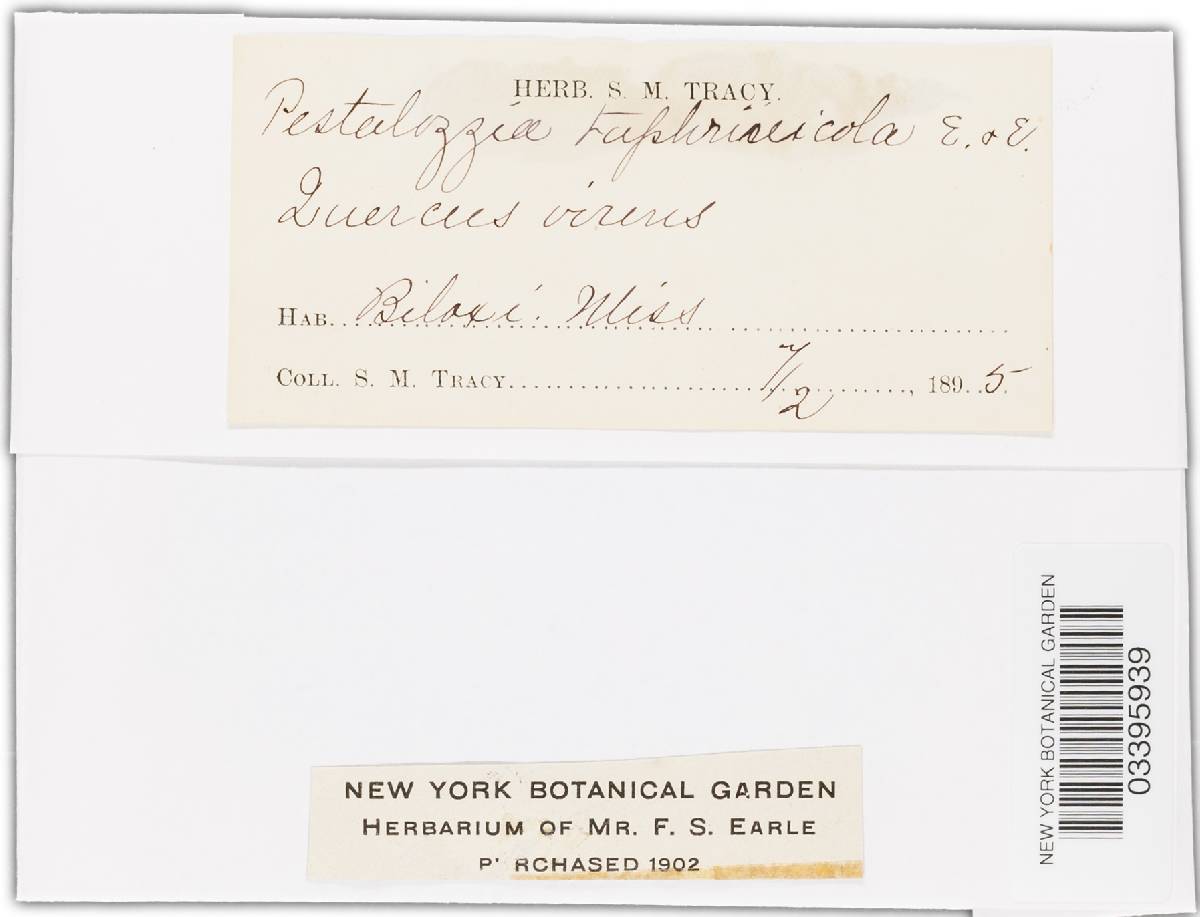 HERB. S. M. TRACY.
Pestalozzia taphrinicola E. & E.
Quercus virens
HAB. Biloxi. Miss
COLL. S. M. TRACY. 7/2, 1895
NEW YORK BOTANICAL GARDEN
03395939
NEW YORK BOTANICAL GARDEN
HERBARIUM OF MR. F. S. EARLE
P' RCHASED 1902